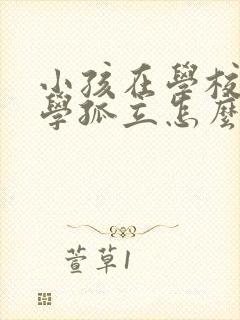 小孩在學校
學孤立怎麼
萱草1